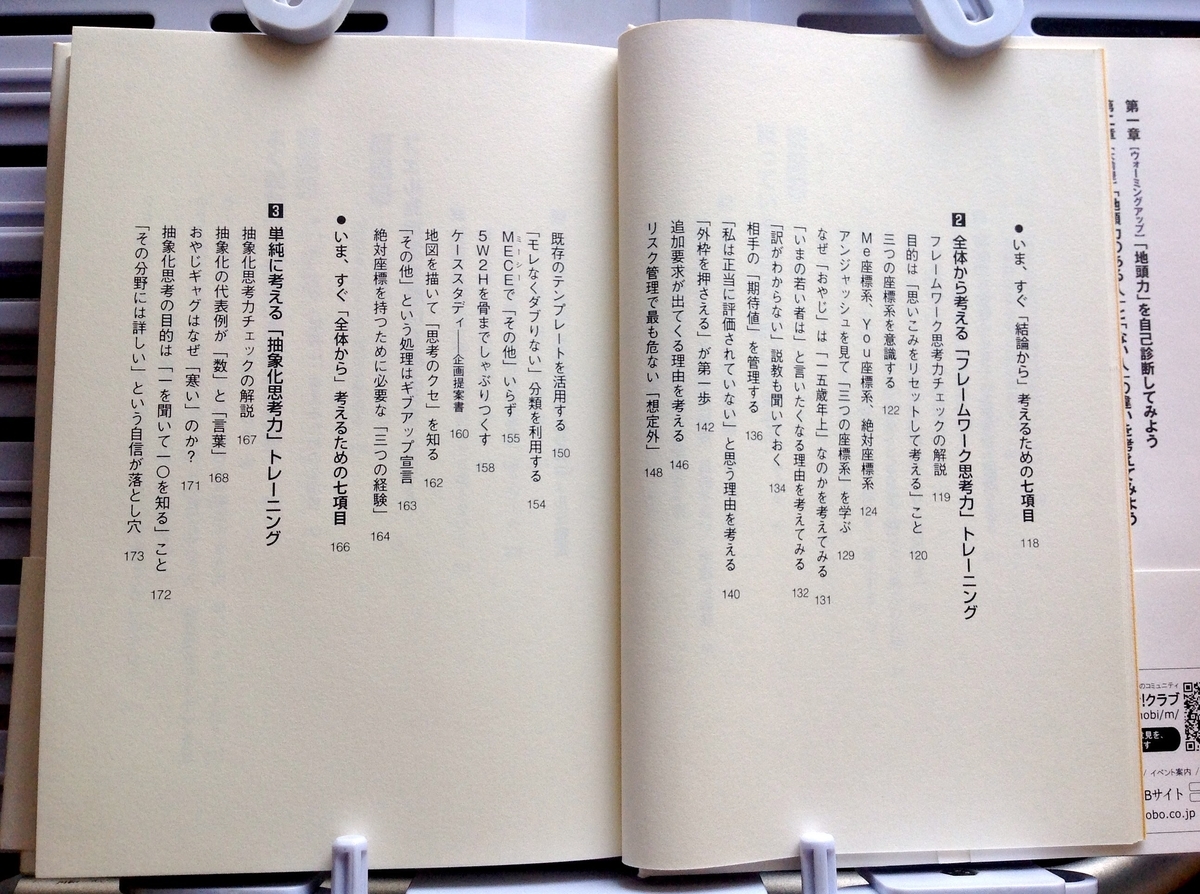 ● いま、すぐ「結論から」考えるための七項目 118
2 全体から考える「フレームワーク思考力」トレーニング
フレームワーク思考力チェックの解説 119
目的は「思いこみをリセットして考える」こと 120
三つの座標系を意識する 122
Me座標系、You座標系、絶対座標系 124
アンジャッシュを見て「三つの座標系」を学ぶ 129
なぜ「おやじ」は「一五歳年上」なのかを考えてみる 131
「いまの若い者は」と言いたくなる理由を考えてみる 132
「訳がわからない」説教も聞いておく 134
相手の「期待値」を管理する 136
「私は正当に評価されていない」と思う理由を考える 140
「外枠を押さえる」が第一歩 142
追加要求が出てくる理由を考える 146
リスク管理で最も危ない「想定外」 148
既存のテンプレートを活用する 150
「モレなくダブりない」分類を利用する 154
MECEで「その他」いらず 155
ミーシー
5W2Hを骨までしゃぶりつくす 158
ケーススタディ——企画提案書 160
地図を描いて「思考のクセ」を知る 162
「その他」という処理はギブアップ宣言 163
絶対座標を持つために必要な「三つの経験」 164
● いま、すぐ「全体から」考えるための七項目 166
3 単純に考える「抽象化思考力」トレーニング
抽象化思考力チェックの解説 167
抽象化の代表例が「数」と「言葉」 168
おやじギャグはなぜ「寒い」のか? 171
抽象化思考の目的は「一を聞いて一〇を知る」こと 172
「その分野には詳しい」という自信が落とし穴 173
第一章 [ウォーミングアップ]「地頭力」を自己診断してみよう
のコミュニティ
!クラブ
obi/m/
見を、
す
/ イベント案内 /
Bサイト
obo.co.jp